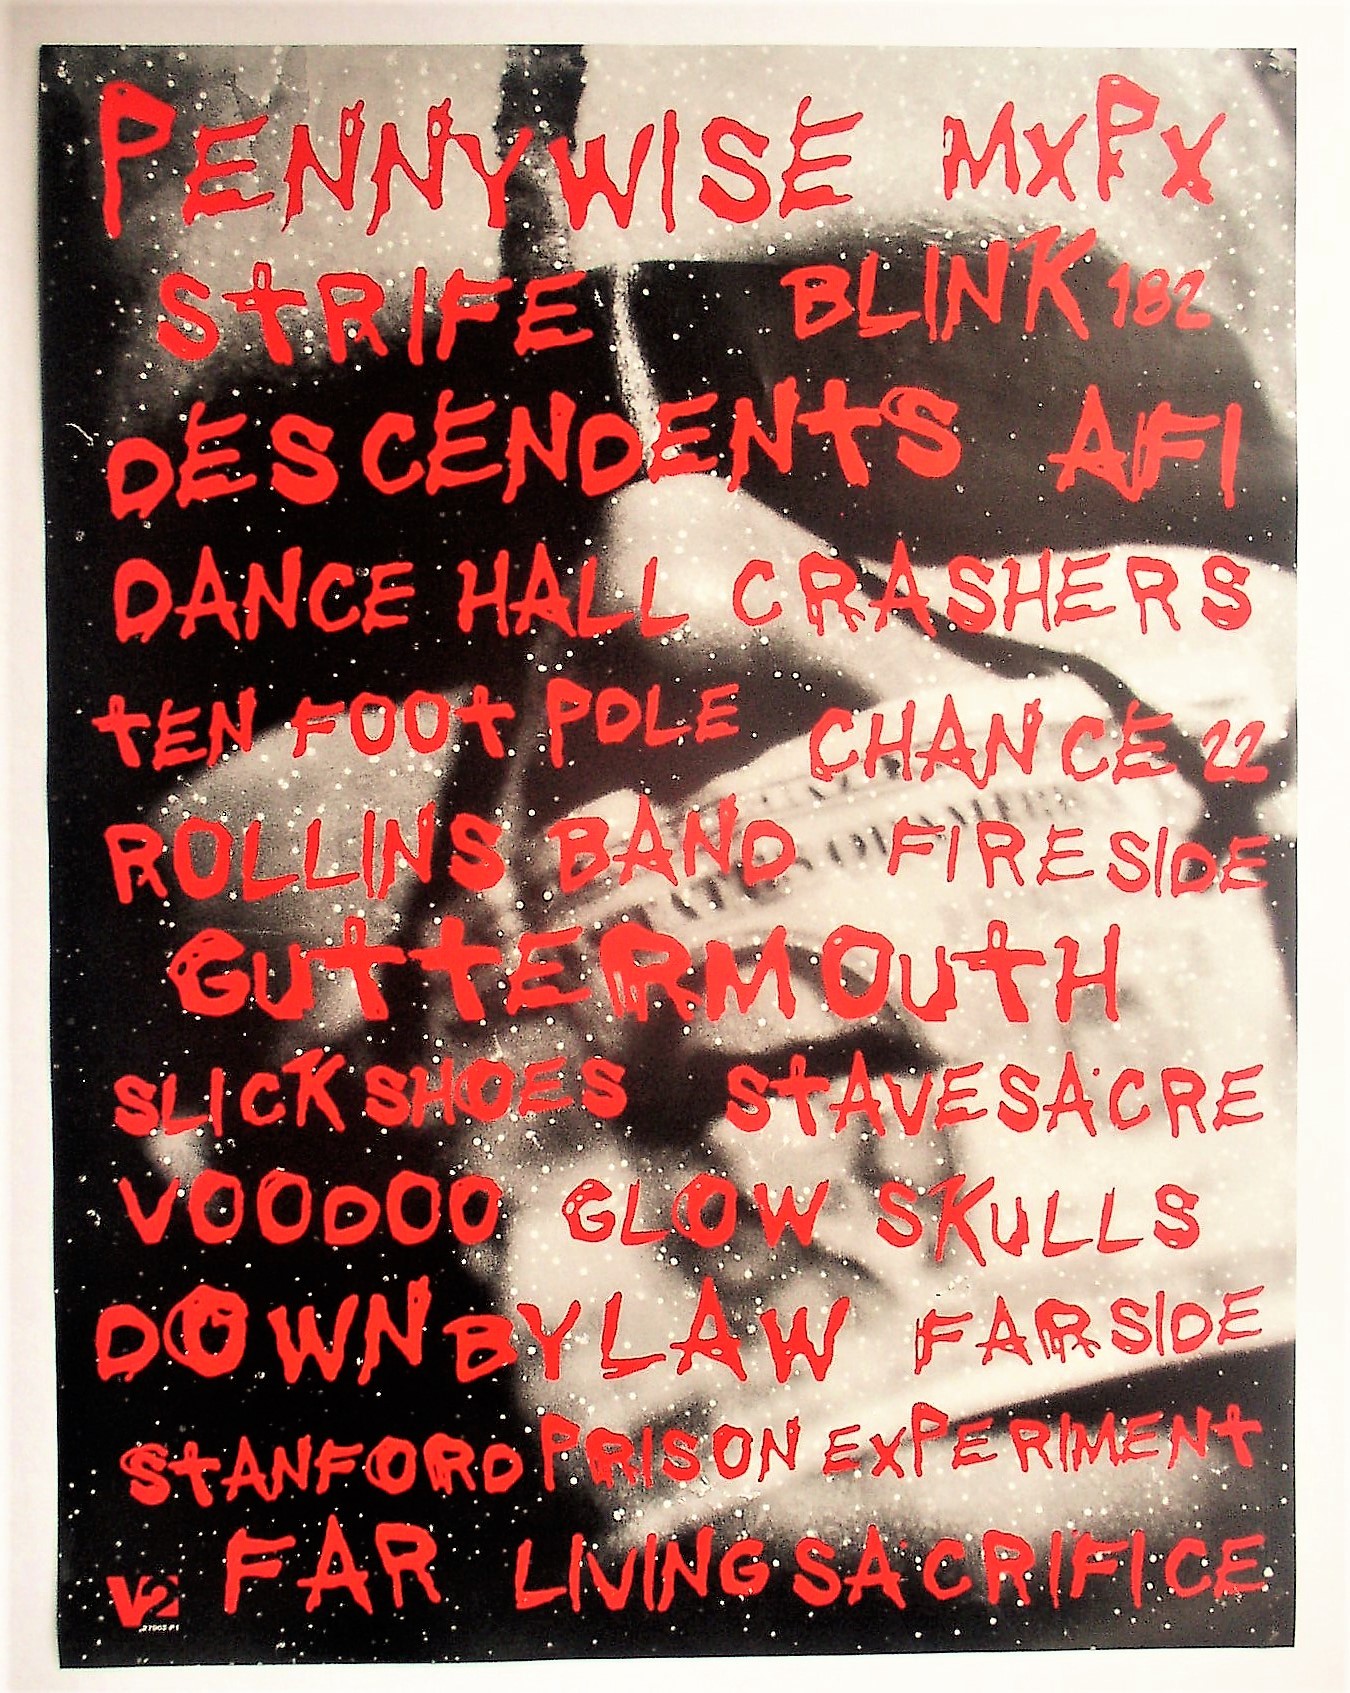 PENNYWISE MxPx
STRIFE BLINK 182
DESCENDENTS AFI
DANCE HALL CRASHERS
TEN FOOT POLE CHANCE 22
ROLLINS BAND FIRESIDE
GUTTERMOUTH
SLICK SHOES STAVESACRE
VOODOO GLOW SKULLS
DOWN BY LAW FARSIDE
STANFORD PRISON EXPERIMENT
FAR LIVING SACRIFICE
V2